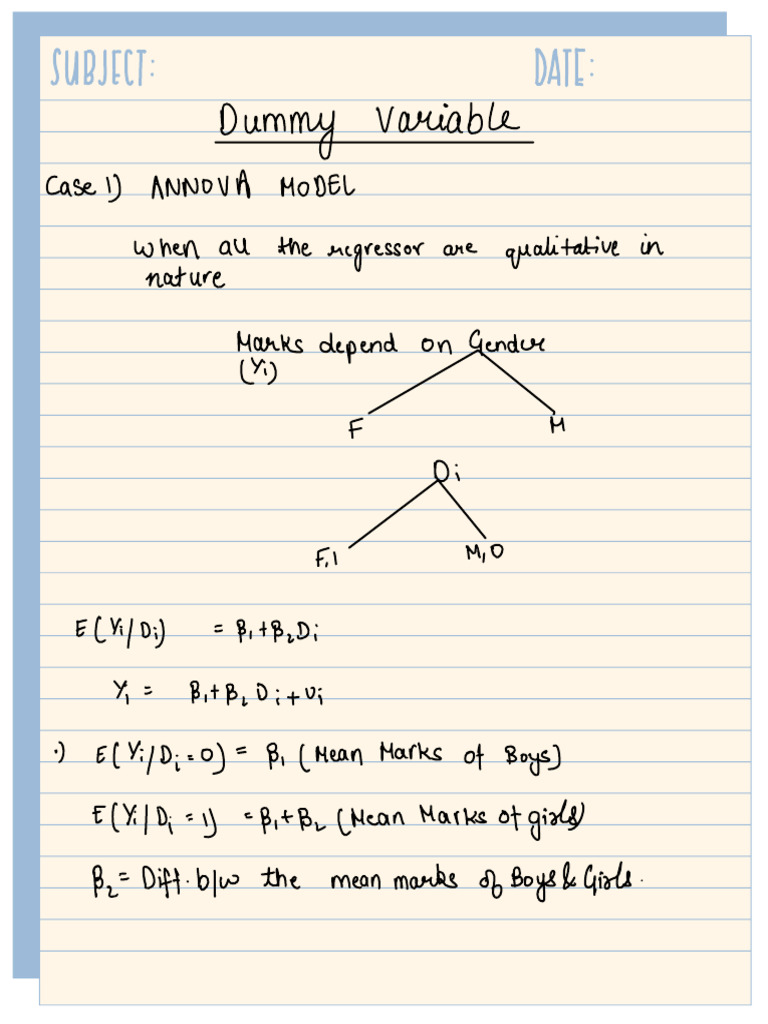 SUBJECT: DATE:
Dummy Variable
Case 1) ANNOVA MODEL
When all the regressor are qualitative in
nature
Marks depend on Gender
(Yi)
F M
Di
F,1 M,0
E(Yi/Di) = β₁+β₂Di
Yi = β₁+β₂Di+Ui
·) E(Yi/Di=0) = β₁ (Mean Marks of Boys)
E(Yi/Di=1) = β₁+β₂ (Mean Marks of girls)
β₂= Diff. b/w the mean marks of Boys & Girls.